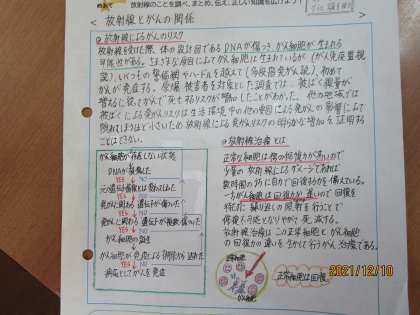 放射線のことを調べ、まとめ、伝え、正しい知識を広げよう!
＜ 放射線とがんの関係
◎放射線によるがんのリスク
放射線を受けた際、体の設計図であるDNAが傷つき、がん細胞が生まれる
可能性がある。さまざまな原因によってがん細胞は生まれているが(がん免疫監視
説)、いくつもの
がん発症する。原爆被害者を対象とした調査では、被ばく線量が
増すに従ってがんで死亡するリスクが増加したことがわかった。他の地域では
被ばくによる発がんリスクは生活環境中の他の要因による発がんの影響によって
隠れてしまうほど小さいため放射線による発がんリスクの明らかな増加を証明する
ことはできない。
がん細胞が存在しない状態
DNAが損傷した
YES NO
YES NO
発がんに関わる遺伝子が傷ついた?
YES NO
発がんに関わる遺伝子が複数傷ついた
YES NO
がん細胞の誕生
がん細胞が免疫による排除から逃れた
YES NO
病気としてがんを発症
◎放射線治療とは
正常な細胞は傷の修復力が高いので
少量の放射線によるダメージであれば
数時間のうちに自力で回復する力を備えている。
一方がん細胞は回復力が遅いので回復を
待たずに繰り返しの照射を行うことで
修復不可能となりやがて死滅する。
放射線治療はこの正常細胞とがん細胞
の回復力の違いを生かして行うがん治療である。
正常細胞
がん細胞
正常細胞は回復
2021/12/10